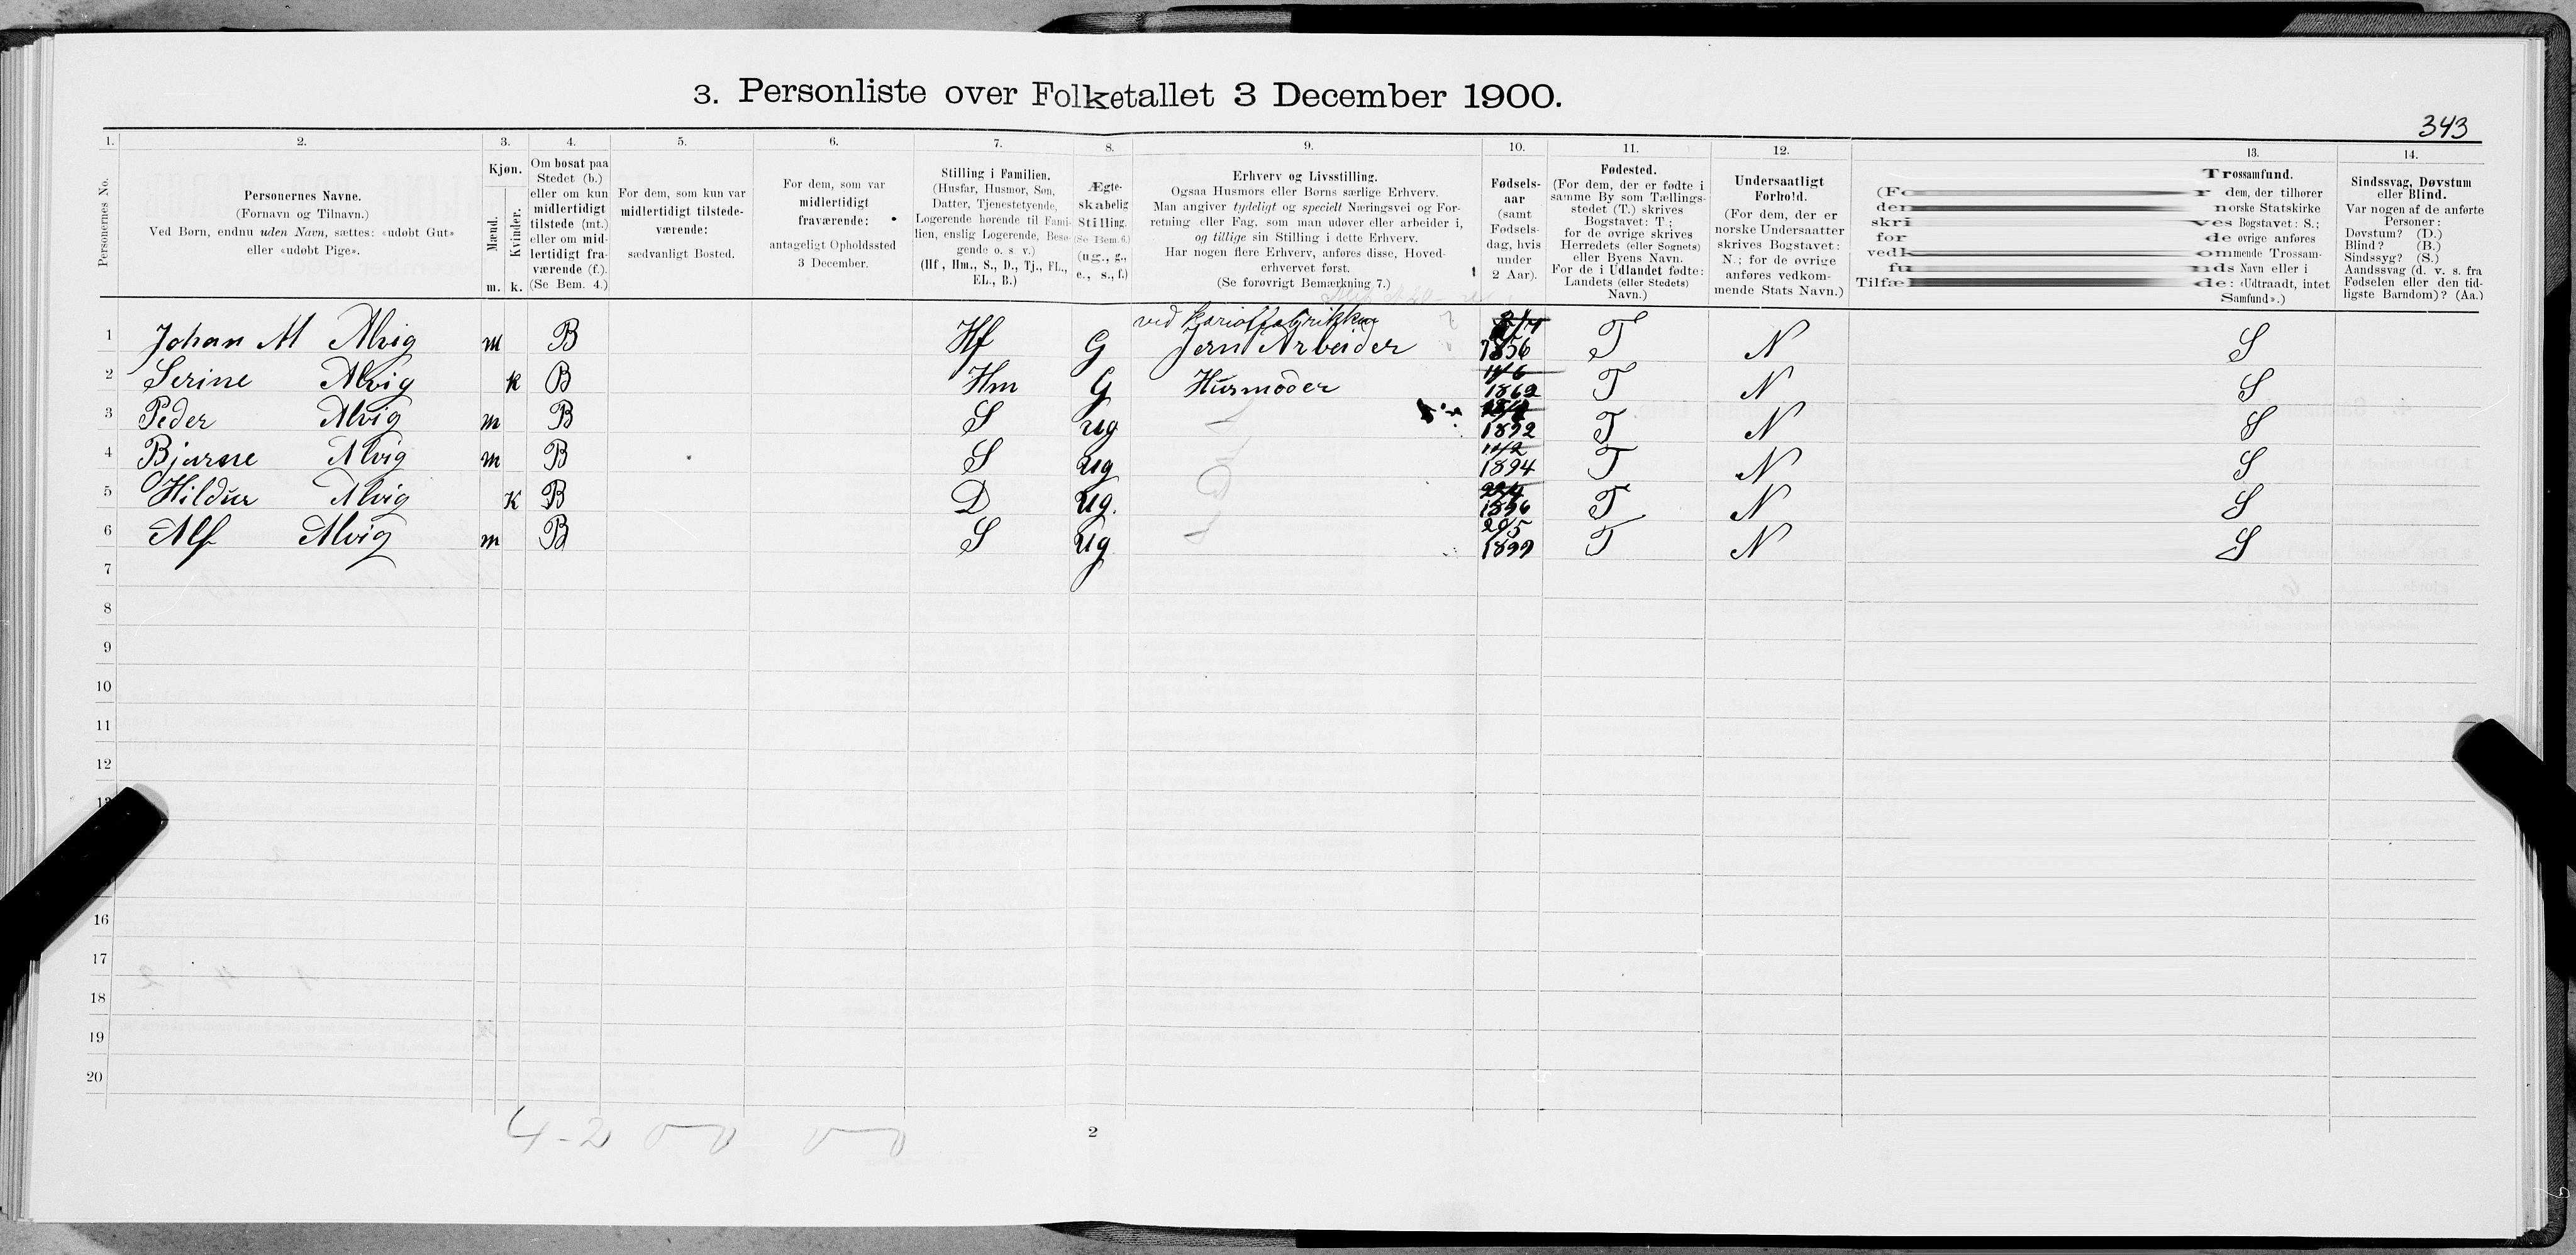 3. Personliste over Folketallet 3 December 1900.
343
1. 2. 3. 4. 5. 6. 7. 8. 9. 10. 11. 12. 13. 14.
Personernes No.
Personernes Navne.
(Fornavn og Tilnavn.)
Ved Børn, endnu uden Navn, sættes: «udøbt Gut»
eller «udøbt Pige».
Kjøn.
Mænd.
Kvinder.
m. k.
Om bosat paa
Stedet (b.)
eller om kun
midlertidigt
tilstede (mt.)
eller om mid-
lertidigt fra-
værende (f.).
(Se Bem. 4.)
For dem, som kun var
midlertidigt tilstede-
værende:
sædvanligt Bosted.
For dem, som var
midlertidigt
fraværende:
antageligt Opholdssted
3 December.
Stilling i Familien.
(Husfar, Husmor, Søn,
Datter, Tjenestetyende,
Logerende hørende til Fami-
lien, enslig Logerende, Besø-
gende o. s. v.)
(Hf, Hm., S., D., Tj., FL.,
EL., B.)
Ægte-
skabelig
Stilling.
(Se Bem. 6.)
(ug., g.,
e., s., f.)
Erhverv og Livsstilling.
Ogsaa Husmors eller Børns særlige Erhverv.
Man angiver tydeligt og specielt Næringsvei og For-
retning eller Fag, som man udøver eller arbeider i,
og tillige sin Stilling i dette Erhverv.
Har nogen flere Erhverv, anføres disse, Hoved-
erhvervet først.
(Se forøvrigt Bemærkning 7.)
Fødsels-
aar
(samt
Fødsels-
dag, hvis
under
2 Aar).
Fødested.
(For dem, der er fødte i
samme By som Tællings-
stedet (T.) skrives
Bogstavet: T;
for de øvrige skrives
Herredets (eller Sognets)
eller Byens Navn.
For de i Udlandet fødte:
Landets (eller Stedets)
Navn.)
Undersaatligt
Forhold.
(For dem, der er
norske Undersaatter
skrives Bogstavet:
N.; for de øvrige
anføres vedkom-
mende Stats Navn.)
Trossamfund.
(For dem, der tilhører
den norske Statskirke
skrives Bogstavet: S.;
for de øvrige anføres
vedkommende Trossam-
funds Navn eller i
Tilfælde: «Udtraadt, intet
Samfund».)
Sindssvag, Døvstum
eller Blind.
Var nogen af de anførte
Personer:
Døvstum? (D.)
Blind? (B.)
Sindssyg? (S.)
Aandssvag (d. v. s. fra
Fødselen eller den tid-
ligste Barndom)? (Aa.)
ved Kariolfabrikken
1 Johan M Alvig m B Hf G Jern Arbeider 1856 T N S
2 Serine Alvig k B Hm G Husmoder 1862 T N S
3 Peder Alvig m B S ug 1892 T N S
4 Bjarne Alvig m B S ug 1894 T N S
5 Hildur Alvig K B D ug. 1896 T N S
6 Alf Alvig m B S ug 29/5 1899 T N S
7
8
9
10
11
12
13
16
17
18
19
20
4-2
2